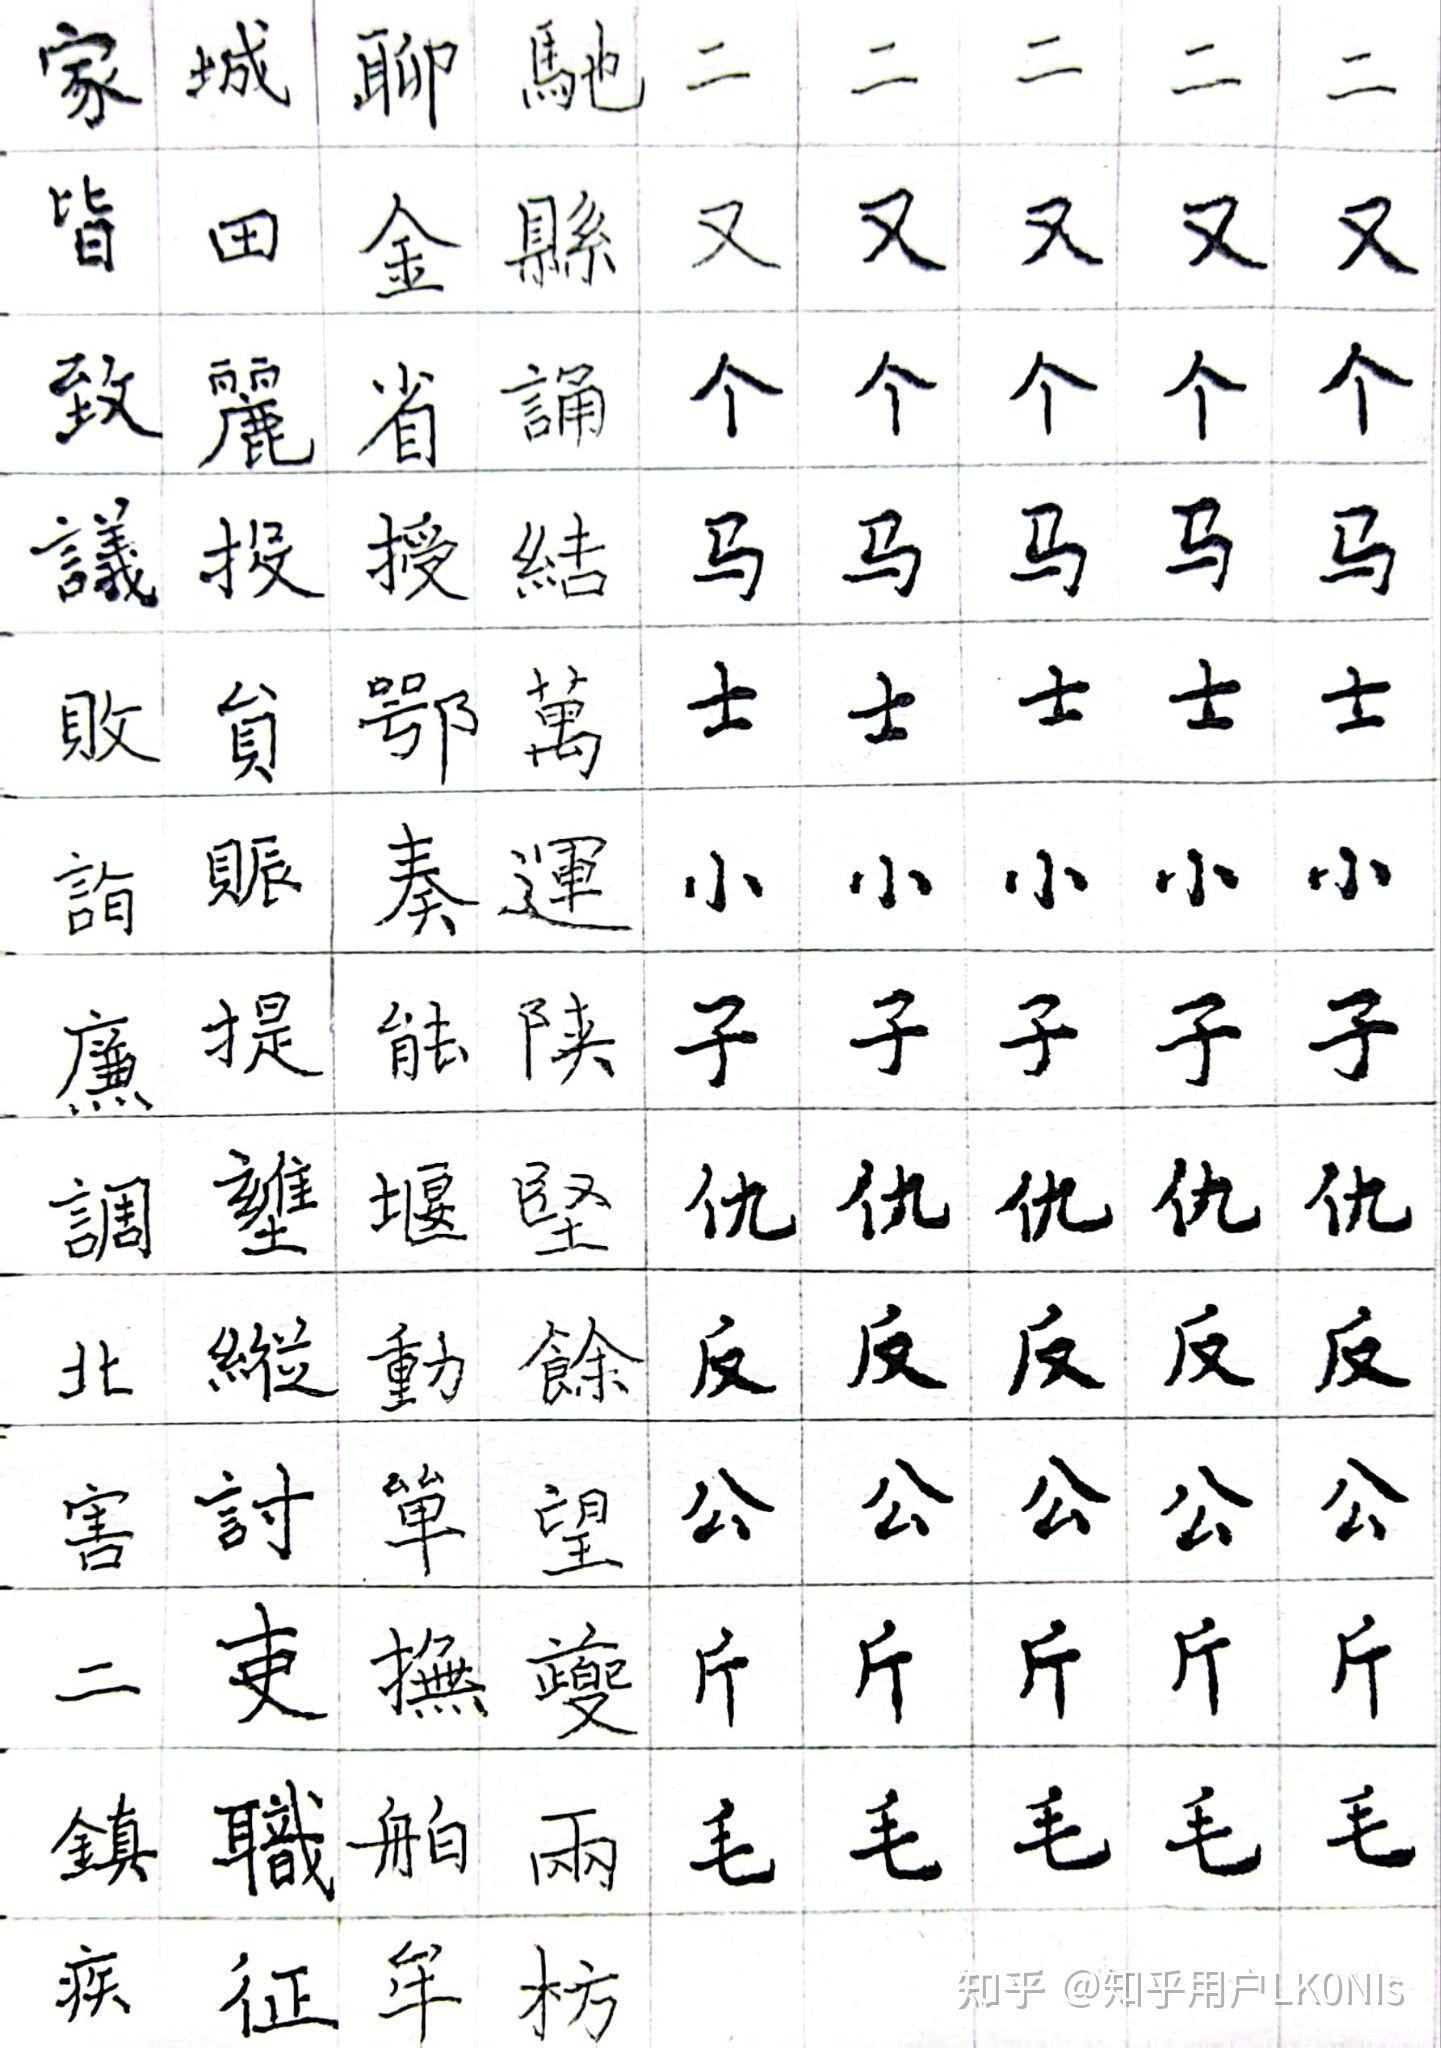 家 城 聊 馳 二 二 二 二 二
皆 田 金 縣 又 又 又 又 又
致 麗 省 誦 个 个 个 个 个
議 投 授 結 马 马 马 马 马
敗 貟 鄂 萬 士 士 士 士 士
詣 賑 奏 運 小 小 小 小 小
廉 提 能 陕 子 子 子 子 子
調 壅 堰 堅 仇 仇 仇 仇 仇
北 縱 動 餘 反 反 反 反 反
害 討 單 望 公 公 公 公 公
二 吏 撫 夔 斤 斤 斤 斤 斤
鎮 職 舶 兩 毛 毛 毛 毛 毛
疾 征 牟 枋
知乎 @知乎用户LK0NIs